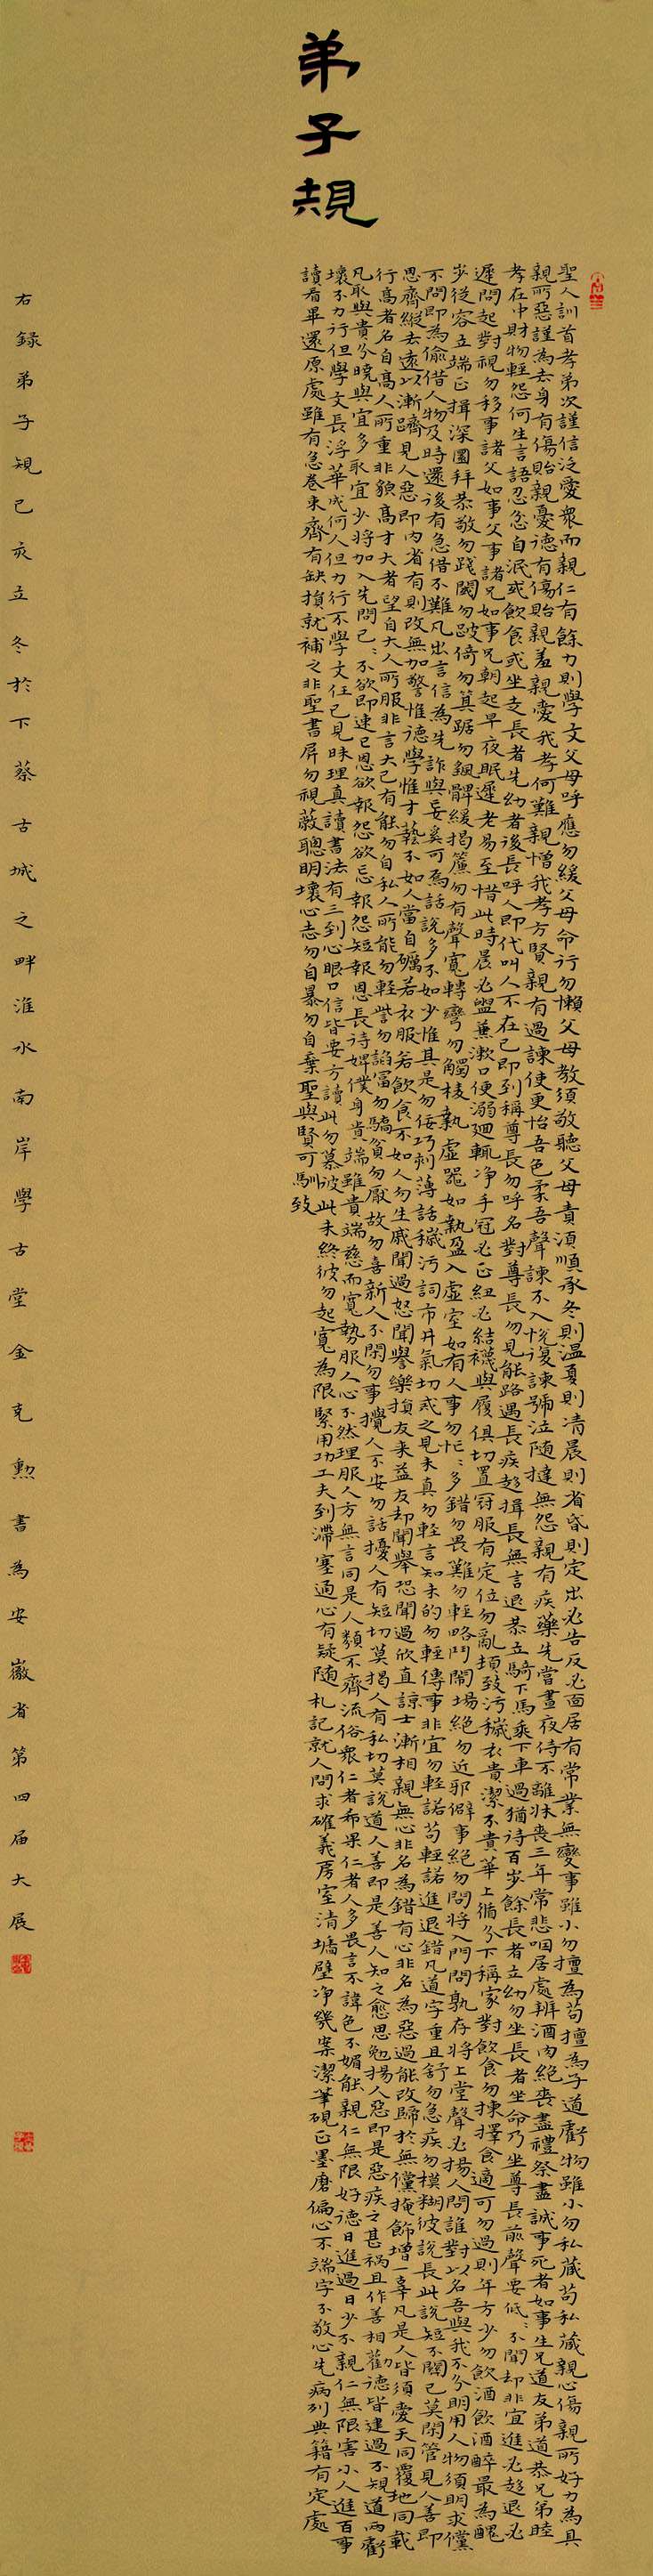 弟子規
聖人訓首孝弟次謹信泛愛眾而親仁有餘力則學文父母呼應勿緩父母命行勿懶父母教須敬聽父母責須順承冬則溫夏則凊晨則省昏則定出必告反必面居有常業無變事雖小勿擅為苟擅為子道虧物雖小勿私藏苟私藏親心傷親所好力為具
親所惡謹為去身有傷貽親憂德有傷貽親羞親愛我孝何難親憎我孝方賢親有過諫使更怡吾色柔吾聲諫不入悅復諫號泣随撻無怨親有疾藥先嘗晝夜侍不離牀喪三年常悲咽居處辨酒肉絕喪盡禮祭盡誠事死者如事生兄道友弟道恭兄弟睦
孝在中財物輕怨何生言語忍忿自泯或飲食或坐走長者先幼者後長呼人即代叫人不在己即到稱尊長勿呼名對尊長勿見能路遇長疾趨揖長無言退恭立騎下馬乘下車過猶待百步餘長者立幼勿坐長者坐命乃坐尊長前聲要低:不聞却非宜進必趨退必
遲問起對視勿移事諸父如事父事諸兄如事兄朝起早夜眠遲老易至惜此時晨必盥兼漱口便溺迴輒净手冠必正紐必結襪與履俱切置冠服有定位勿亂頓致污穢衣貴潔不貴華上循分下稱家對飲食勿揀擇食適可勿過則年方少勿飲酒飲酒醉最為醜
步從容立端正揖深圓拜恭敬勿踐閾勿跛倚勿箕踞勿搖髀緩揭簾勿有聲寬轉彎勿觸棱執虛器如執盈入虛室如有人事勿忙:多錯勿畏難勿輕略鬥鬧場絕勿近邪僻事絕勿問將入門問孰存將上堂聲必揚人問誰對以名吾與我不分明用人物須明求儻
不問即為偷借人物及時還後有急借不難凡出言信為先詐與妄奚可焉話說多不如少惟其是勿佞巧刻薄話穢污詞市井氣切戒之見未真勿輕言知未的勿輕傳事非宜勿輕諾苟輕諾進退錯凡道字重且舒勿急疾勿模糊彼說長此說短不關己莫閑管見人善即
思齊縱去遠以漸躋見人惡即內省有則改無加警惟德學惟才藝不如人當自礪若衣服若飲食不如人勿生戚聞過怒聞譽樂損友來益友却聞譽恐聞過欣直諒士漸相親無心非名為錯有心非名為惡過能改歸於無儻掩飾增一辜凡是人皆須愛天同覆地同載
行高者名自高人所重非貌高才大者望自大人所服非言大己有能勿自私人所能勿輕訾勿諂富勿驕貧勿厭故勿喜新人不閑勿事攪人不安勿話擾人有短切莫揭人有私切莫說道人善即是善人知之愈思勉揚人惡即是惡疾之甚禍且作善相勸德皆建過不規道兩虧
凡取與貴分曉與宜多取宜少將加人先問己:不欲即速已恩欲報怨欲忘報怨短報恩長待婢僕身貴端雖貴端慈而寬勢服人心不然理服人方無言同是人類不齊流俗衆仁者希果仁者人多畏言不諱色不媚能親仁無限好德日進過日少不親仁無限害小人進百事
壞不力行但學文長浮華成何人但力行不學文任己見昧理真讀書法有三到心眼口信皆要方讀此勿慕彼此未終彼勿起寬為限緊用功工夫到滯塞通心有疑随札記就人問求確義房室清墻壁净幾案潔筆硯正墨磨偏心不端字不敬心先病列典籍有定處
讀看畢還原處雖有急卷束齊有缺損就補之非聖書屏勿視蔽聰明壞心志勿自暴勿自棄聖與賢可馴致
右錄弟子規己亥立冬於下蔡古城之畔淮水南岸學古堂金克勲書為安徽省第四届大展